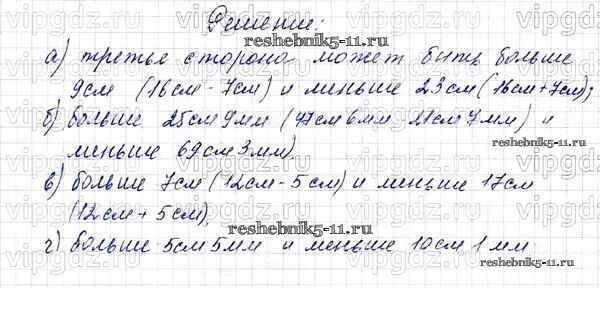 Решение:
reshebnik5-11.ru
а) третья сторона может быть больше
9см (16см - 7см) и меньше 23см (16см+7см);
б) больше 25см 9мм (47см 6мм 21см 7мм) и
reshebnik5-11.ru
меньше 69см 3мм);
в) больше 7см (12см - 5см) и меньше 17см
(12см + 5см);
reshebnik5-11.ru
г) больше 5см 5мм и меньше 10см 1мм
reshebnik5-11.ru
vipgdz.ru vipgdz.ru vipgdz.ru